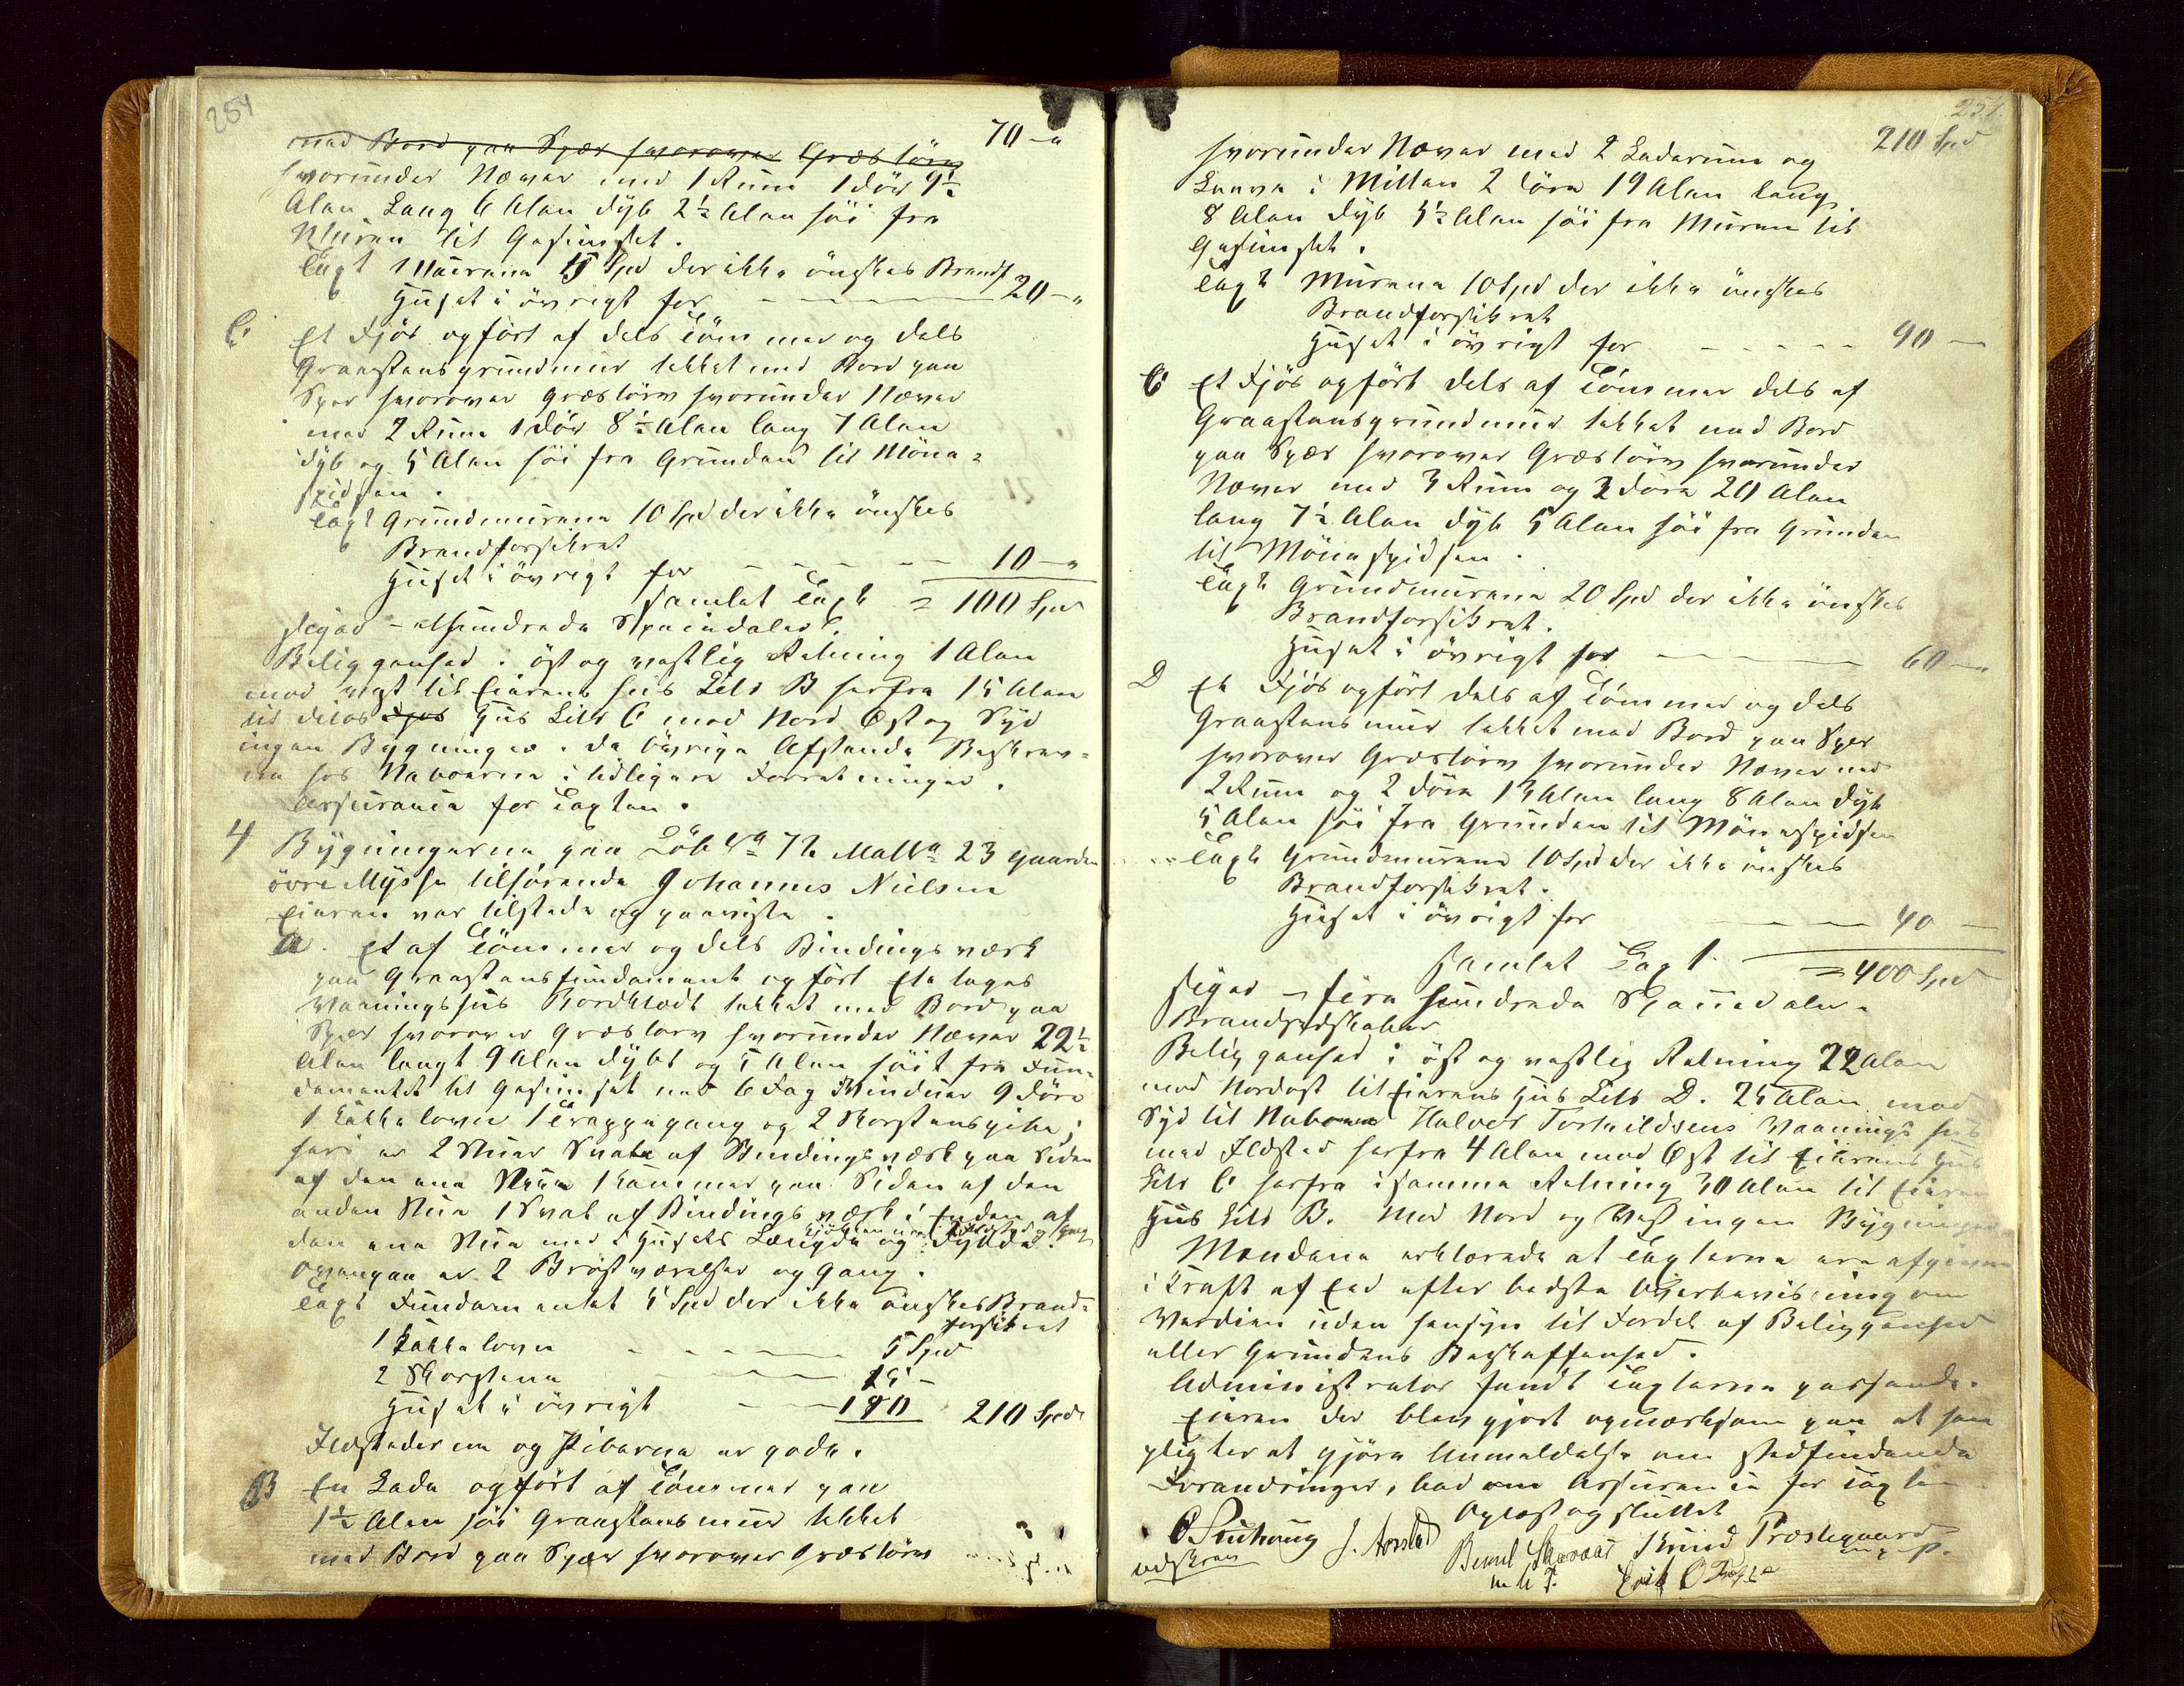 254
70 -"
med Bord paa Spær hvorover Græstörv
hvorunder Næver med 1 Rum 1 dör 9½
Alen Lang 6 Alen dyb 2½ Alen höi fra
Muren til Gesimset.
Taxt Murene 15 Spd der ikke önskes Brandf
Huset i övrigt for - - - 20 -"
C. Et Fjös opfört af dels Tömmer og dels
Graastensgrundmur tækket med Bord paa
Spær hvorover Græstörv hvorunder Næver
med 2 Rum 1 dör 8½ Alen lang 7 Alen
dyb og 5 Alen höi fra Grunden til Möne-
spidsen.
Taxt Grundmurene 10 Spd der ikke önskes
Brandforsikret
Huset i övrigt for - - - 10 -"
samlet Taxt = 100 Spd
siger - et hundrede Speciedaler.
Beliggenhed i öst og vestlig Retning 1 Alen
mod vest til Eierens hus Litr B herfra 15 Alen
til dito Fjös Hus Litr C mod Nord Öst og Syd
ingen Bygninger. De övrige Afstande Beskrev-
ne hos Naboerne i tidligere Forretninger.
Assurance for Taxten.
4 Bygningerne paa Löb No 72 Matr No 23 gaarden
övre Mysse tilhörende Johannes Nielsen
Eieren var tilstede og paaviste.
A. Et af Tömmer og dels Bindingsværk
paa Graastensfundament opfört Etetages
Vaaningshus Bordklædt tækket med Bord paa
Spær hvorover Græstörv hvorunder Næver 22½
Alen langt 9 Alen dybt og 5 Alen höit fra Fun-
damentet til Gesimset med 6 Fag Vinduer 9 döre
1 Kakkelovn 1 Trappegang og 2 Skorstenspiber;
heri er 2 Stuer Svale af Bindingsværk paa Siden
af den ene Stue 1 Kammer paa Siden af den
anden Stue 1 Sval af Bindingsværk i Enden af
Kjökken med Ildsted og gang
den ene Stue med Husets Længde og Dybde.
Ovenpaa er 2 Bröstværelser og Gang.
Taxt Fundamentet 5 Spd der ikke önskes Brand-
forsikret
1 Kakkelovn - - - 5 Spd
2 Skorstene - - - 25 -
Huset i övrigt - - - 180 210 Spd
Ildstederne og Piberne er gode.
B En Lade opfört af Tömmer paa
1½ Alen höi Graastensmur tækket
med Bord paa Spær hvorover Græstörv
210 Spd
hvorunder Næver med 2 Laderum og
Laave i Mitten 2 döre 19 Alen lang
8 Alen dyb 4½ Alen höi fra Muren til
Gesimset.
Taxt Murene 10 Spd der ikke önskes
Brandforsikret
Huset i övrigt for - - - 90 -
C Et Fjös opfört dels af Tömmer dels af
Graastensgrundmur tækket med Bord
paa Spær hvorover Græstörv hvorunder
Næver med 3 Rum og 3 döre 20 Alen
lang 7½ Alen dyb 5 Alen höi fra Grunden
til Mönespidsen.
Taxt Grundmurene 20 Spd der ikke önskes
Brandforsikret.
Huset i övrigt for - - - 60 -"
D Et Fjös opfört dels af Tömmer og dels
Graastensmur tækket med Bord paa Spær
hvorover Græstörv hvorunder Næver med
2 Rum og 2 döre 13 Alen lang 8 Alen dyb
5 Alen höi fra Grunden til Mönespidsen
Taxt Grundmurene 10 Spd der ikke önskes
Brandforsikret.
Huset i övrigt for - - - 40 -
samlet Taxt = 400 Spd
siger - fire hundrede Speciedaler.
Brandredskaber
Beliggenhed i öst og vestlig Retning 22 Alen
mod Nordost til Eierens Hus Litr D. 25 Alen mod
Syd til Naboen Halvor Torkildsens Vaaningshus
med Ildsted herfra 4 Alen mod Öst til Eierens Hus
Litr C herfra i samme Retning 30 Alen til Eieren
Hus Litr B. Mod Nord og Vest ingen Bygninger
Mændene erklærede at Taxterne ere afgivne
i Kraft af Eed efter bedste Overbevisning om
Værdien uden hensyn til Fordel af Beliggenhed
eller Grundens Beskaffenhed.
Administrator fandt Taxterne passende.
Eieren der blev gjort opmærksom paa at han
pligter at gjöre Anmeldelse om stedfindende
Forandringer, bad om Assurance for Taxten.
Oplæst og sluttet
udskrev
m. p. P.